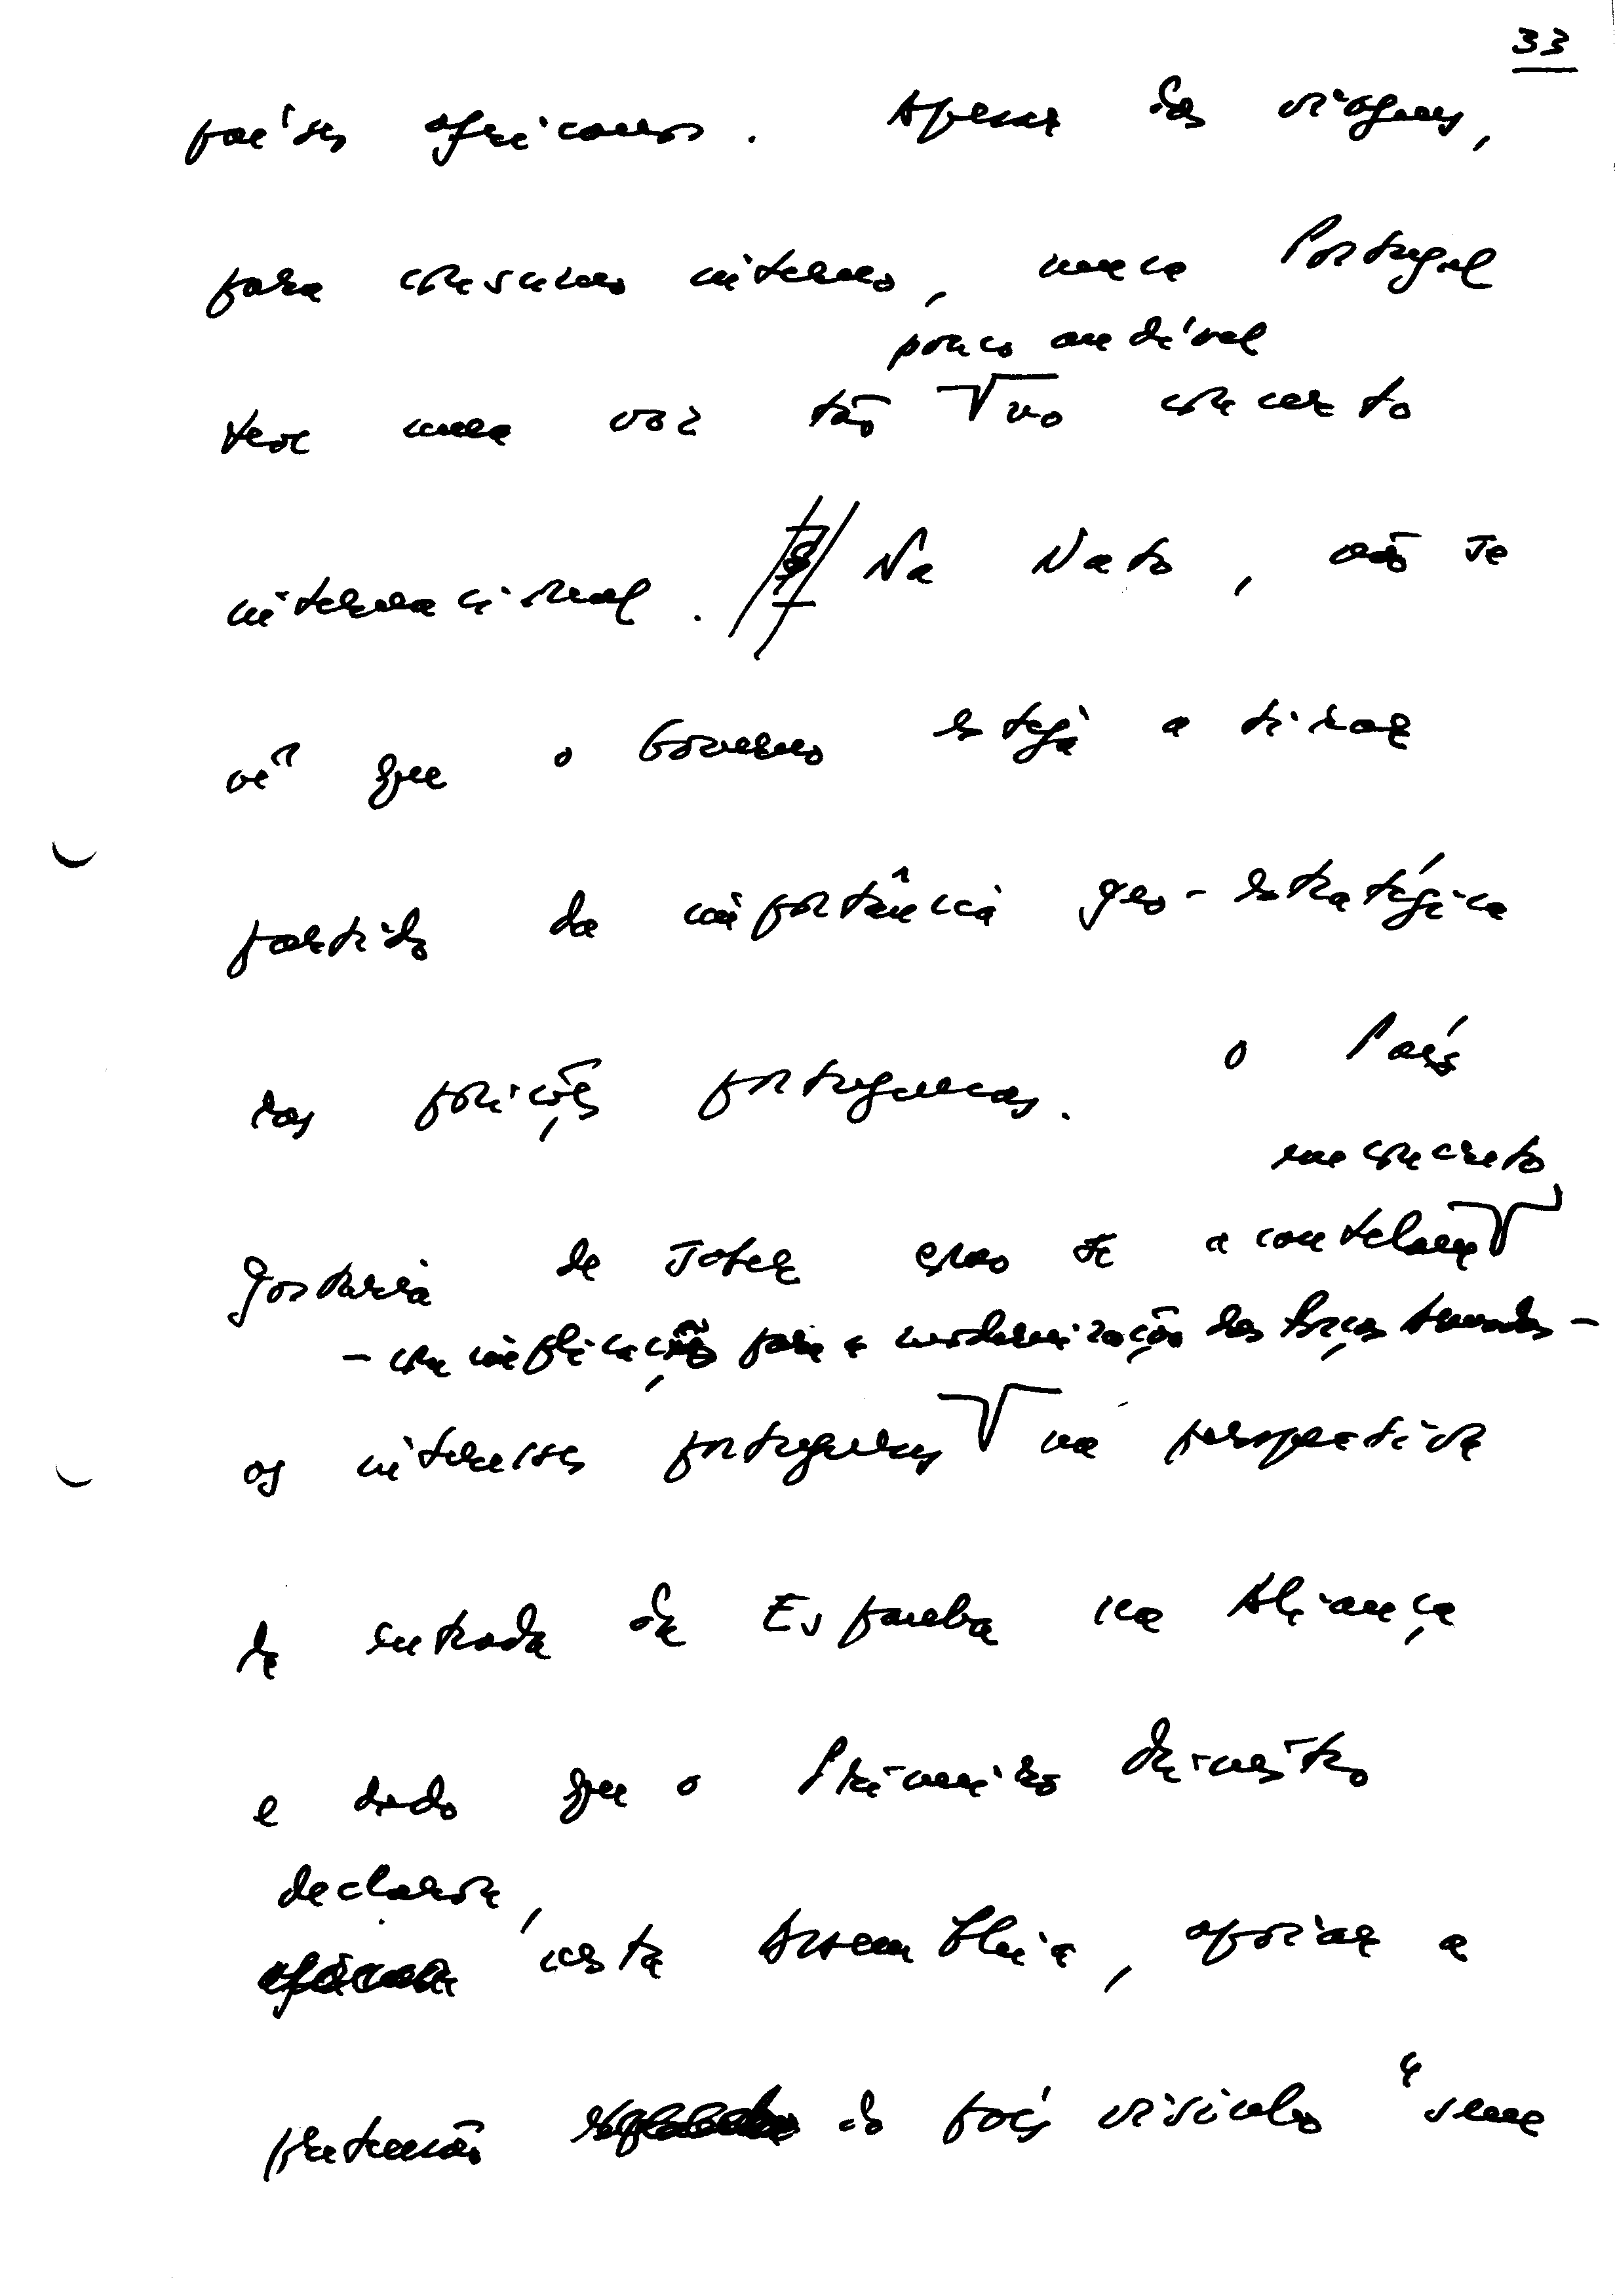 33
países africanos. Apesar das viagens,
para consumo interno, nunca Portugal
pouco audível
teve uma voz tão no concerto
internacional. Na Nato, não se
vê que o Governo esteja a tirar
partido da importância geo-estratégica
das posições portuguesas. O País
em concreto
gostaria de saber como se acautelam
- com implicações para a modernização das Forças Armadas -
os interesses portugueses na perspectiva
da entrada da Espanha na Aliança
e dado que o Primeiro Ministro
declarou,
nesta Assembleia, apoiar a
pretensão do país vizinho "sem